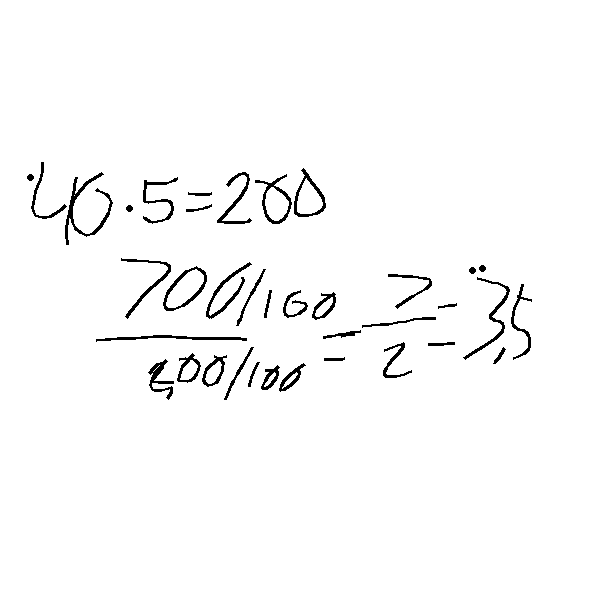 40·5=200
700/100
200/100 = 7/2 = 3,5